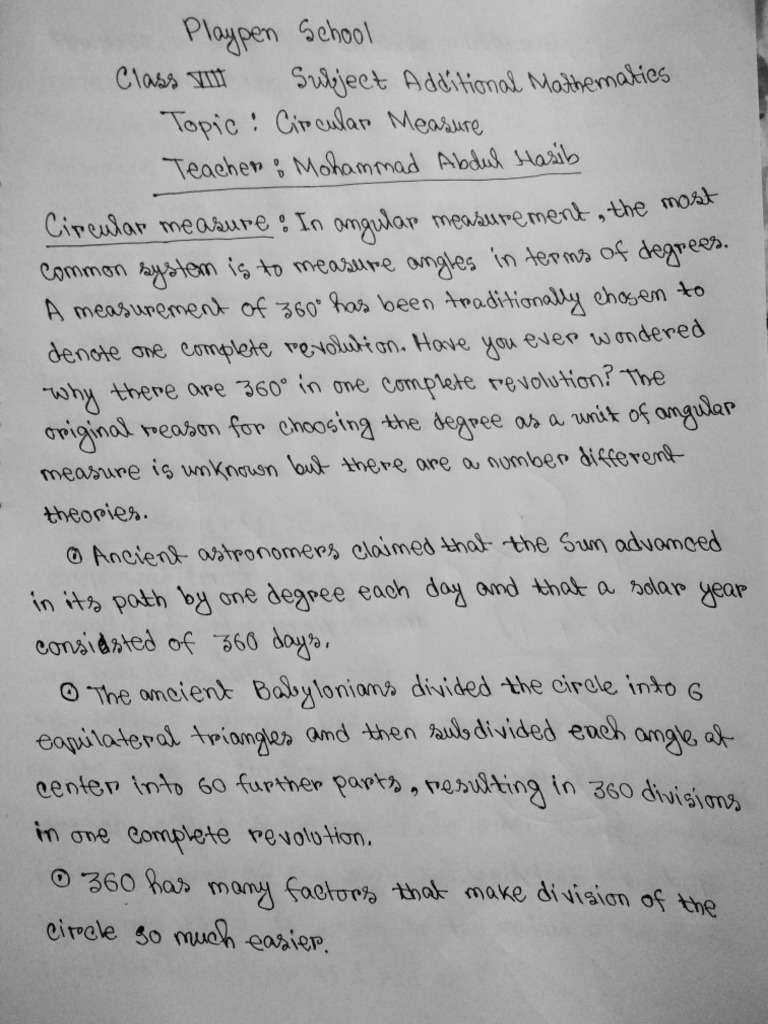 Playpen School
Class VIII Subject Additional Mathematics
Topic : Circular Measure
Teacher : Mohammad Abdul Hasib
Circular measure : In angular measurement, the most
common system is to measure angles in terms of degrees.
A measurement of 360° has been traditionally chosen to
denote one complete revolution. Have you ever wondered
why there are 360° in one complete revolution? The
original reason for choosing the degree as a unit of angular
measure is unknown but there are a number different
theories.
⊙ Ancient astronomers claimed that the Sun advanced
in its path by one degree each day and that a solar year
considsted of 360 days.
⊙ The ancient Babylonians divided the circle into 6
equilateral triangles and then subdivided each angle at
center into 60 further parts, resulting in 360 divisions
in one complete revolution.
⊙ 360 has many factors that make division of the
circle so much easier.